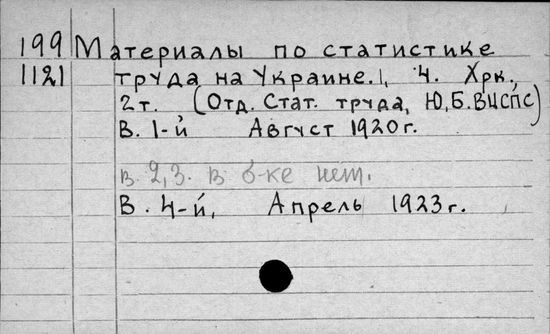 199 Материалы по статистике
1121 труда на Украине. 1, 4. Хрк.
2 т. (Отд. Стат. труда, Ю.Б. ВЦСПС)
В. 1-й Август 1920 г.
в. 2, 3. в б-ке нет.
В. 4-й, Апрель 1923 г.